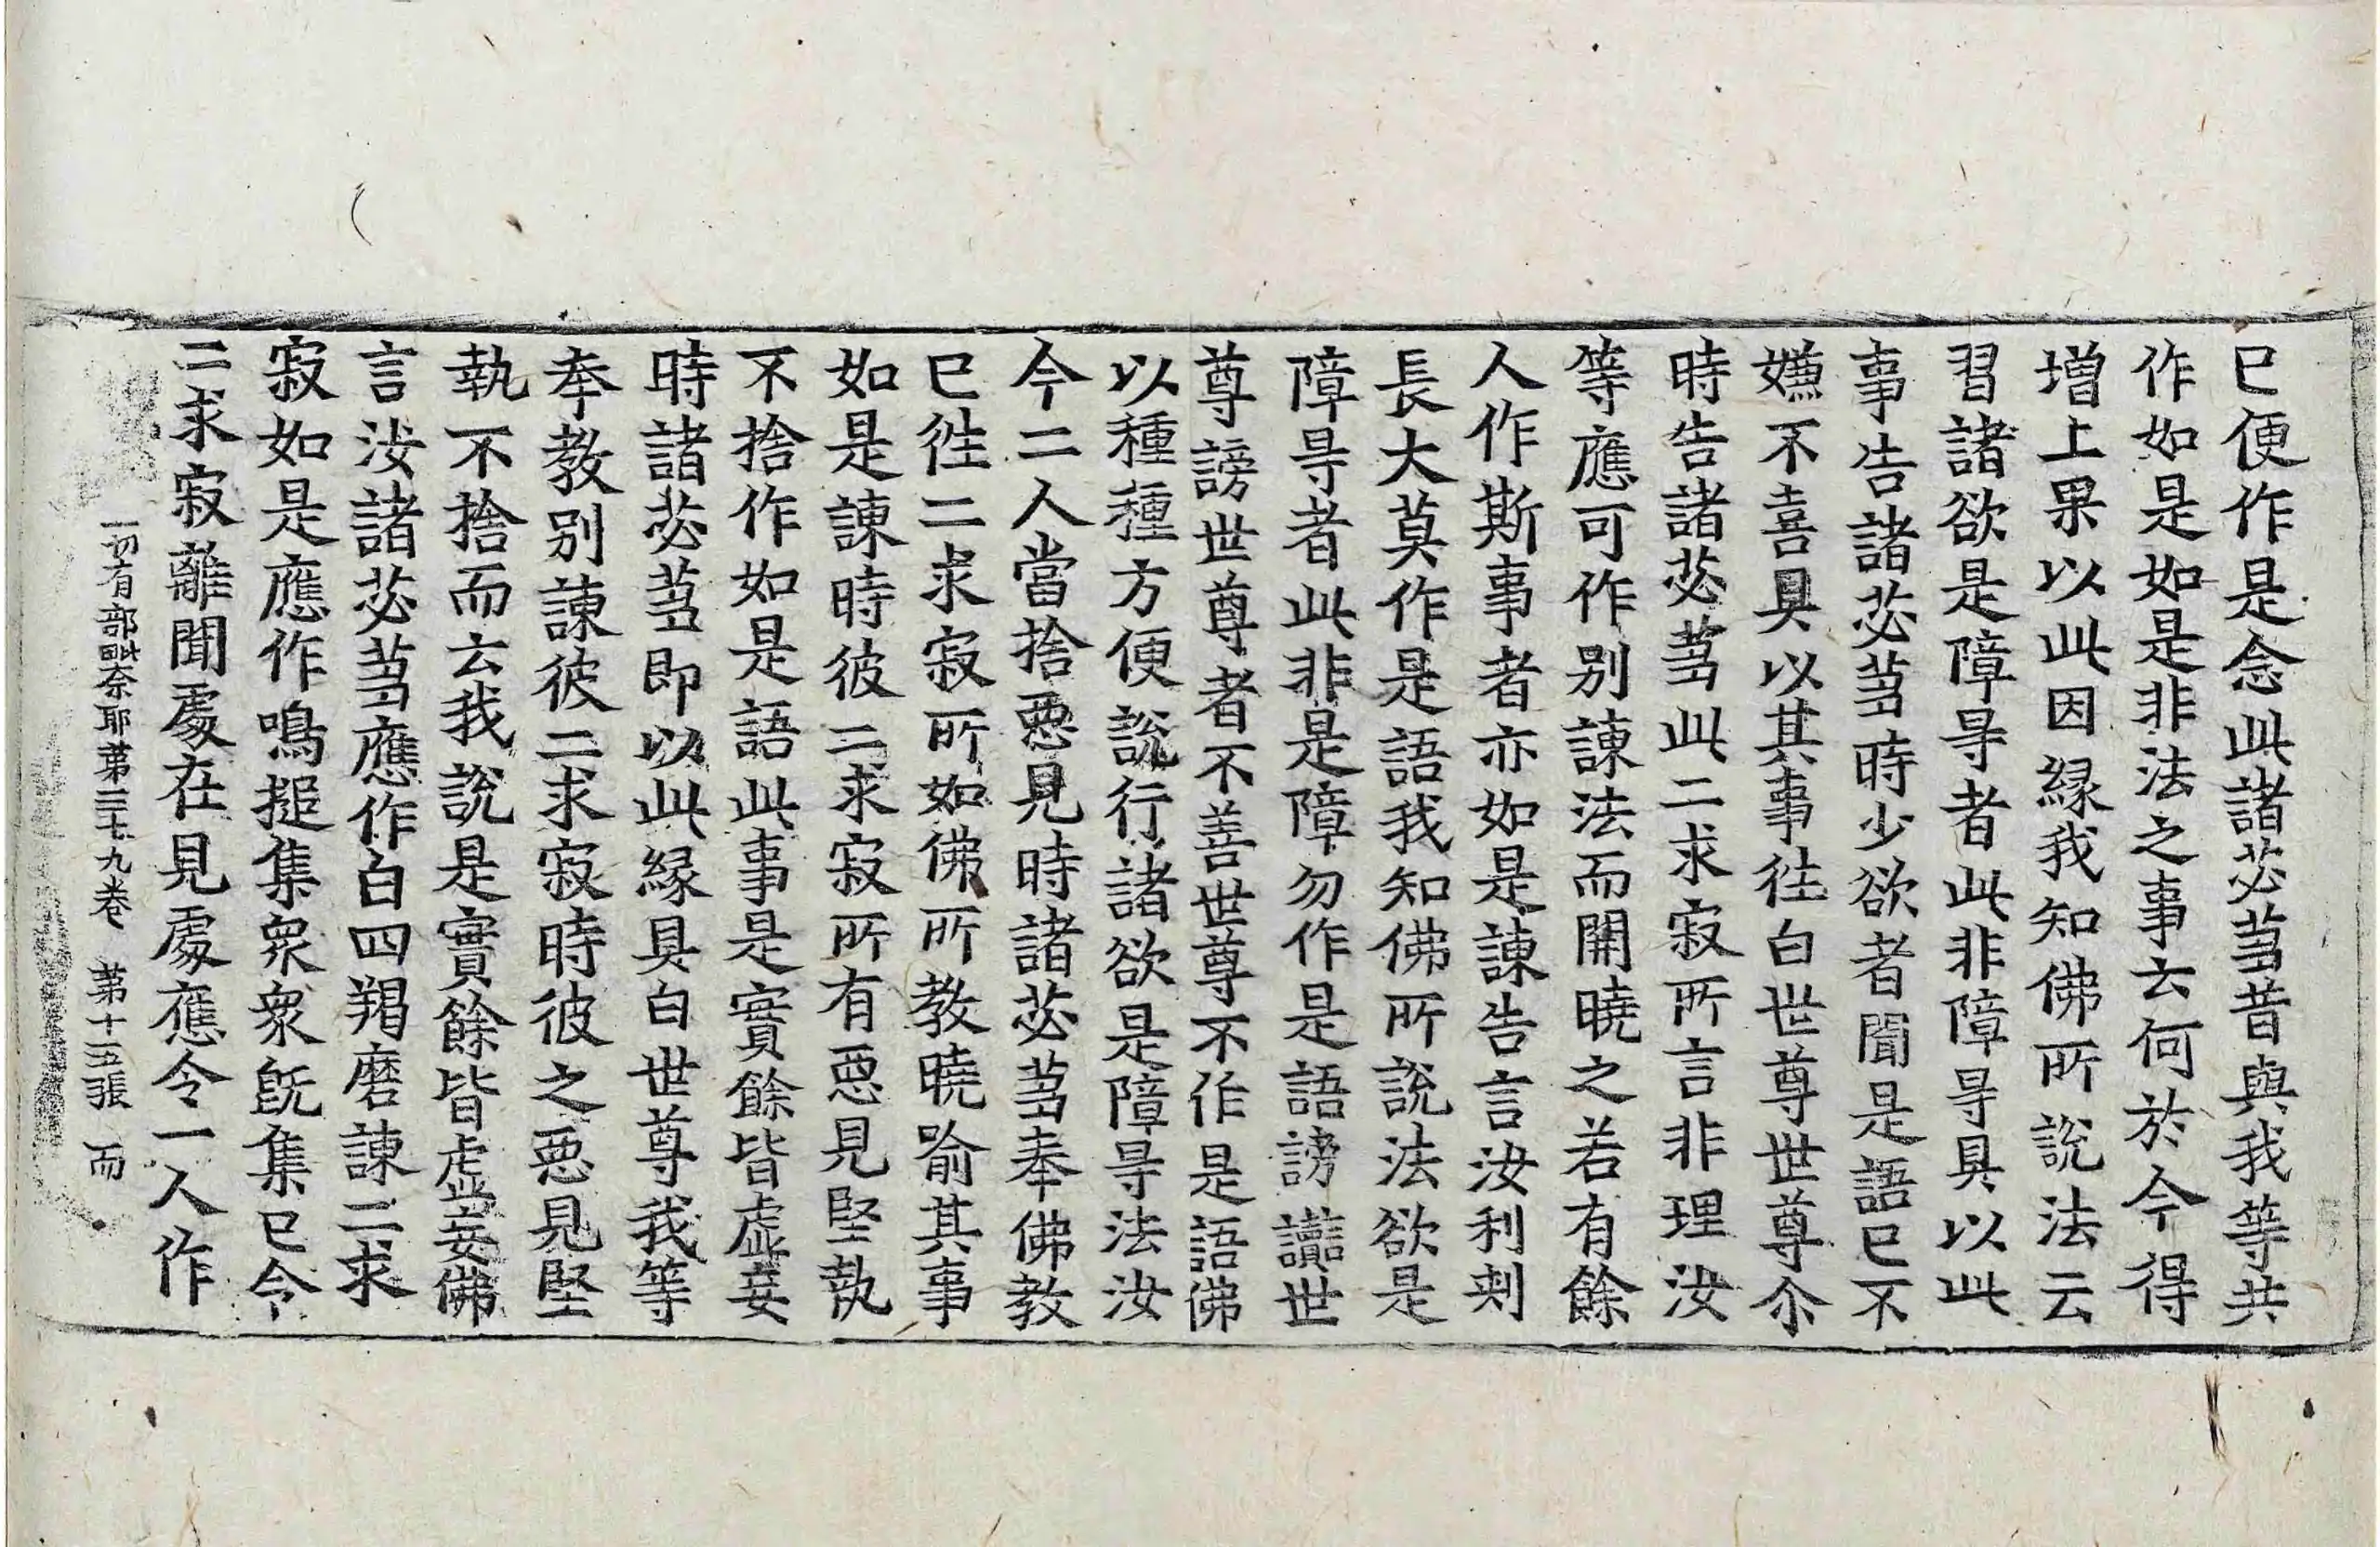 已便作是念此諸苾蒭昔與我等共
作如是如是非法之事云何於今得
增上果以此因緣我知佛所說法云
習諸欲是障㝵者此非障㝵具以此
事告諸苾蒭時少欲者聞是語已不
嫌不喜具以其事往白世尊世尊尒
時告諸苾蒭此二求寂所言非理汝
等應可作別諫法而開曉之若有餘
人作斯事者亦如是諫告言汝利刾
長大莫作是語我知佛所說法欲是
障㝵者此非是障勿作是語謗讟世
尊謗世尊者不善世尊不作是語佛
以種種方便說行諸欲是障㝵法汝
今二人當捨惡見時諸苾蒭奉佛教
已徃二求寂所如佛所教曉喻其事
如是諫時彼二求寂所有惡見堅執
不捨作如是語此事是實餘皆虛妄
時諸苾蒭即以此緣具白世尊我等
奉教別諫彼二求寂時彼之惡見堅
執不捨而云我說是實餘皆虛妄佛
言汝諸苾蒭應作白四羯磨諫二求
寂如是應作鳴搥集衆衆旣集已令
二求寂離聞處在見處應令一人作
一切有部毗奈耶第三十九卷 第十五張 而